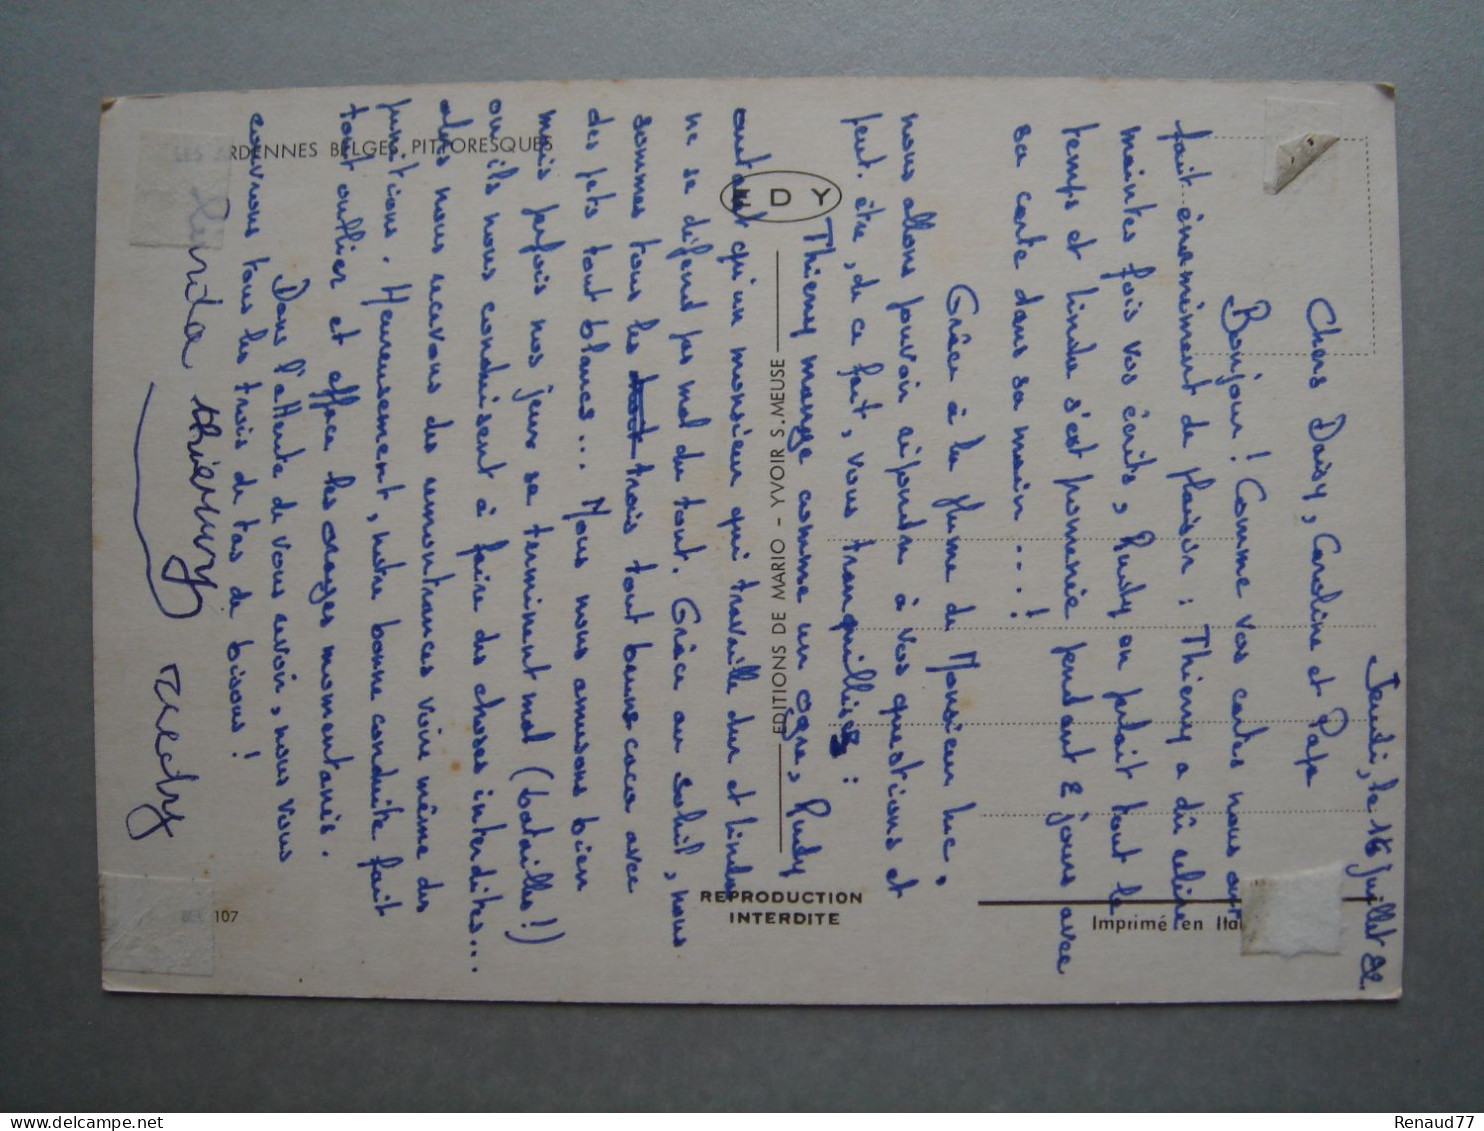 Jeudi, le 16 Juillet 82.
Chers Daisy, Caroline et Papa
Bonjour ! Comme vos cartes nous ont
fait énormément de plaisir : Thierry a dû relire
maintes fois vos écrits, Rudy en parlait tout le
temps et Linda s'est promenée pendant 2 jours avec
sa carte dans sa main...!
Grâce à la plume de Monsieur Luc,
nous allons pouvoir répondre à vos questions et
peut-être, de ce fait, vous tranquilliser :
Thierry mange comme un ogre, Rudy
autant qu'un monsieur qui travaille dur et Linda
ne se défend pas mal du tout. Grâce au soleil, nous
sommes tous les trois tout bruns caca avec
des pets tout blancs... Nous nous amusons bien
mais parfois nos jeux se terminent mal (batailles !)
ou ils nous conduisent à faire des choses interdites...
alors nous recevons des remontrances voire même des
punitions. Heureusement, notre bonne conduite fait
tout oublier et efface les orages momentanés.
Dans l'attente de vous revoir, nous vous
couvrons tous les trois de tas de bisous !
Linda thierry Rudy
ARDENNES BELGES PITTORESQUES
EDY
EDITIONS DE MARIO - YVOIR S.MEUSE
REPRODUCTION
INTERDITE
107
Imprimé en Ital
Renaud77